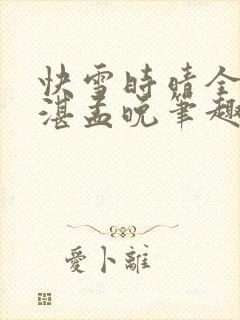 快雪時晴全
湛孟晚筆趣
愛卜離